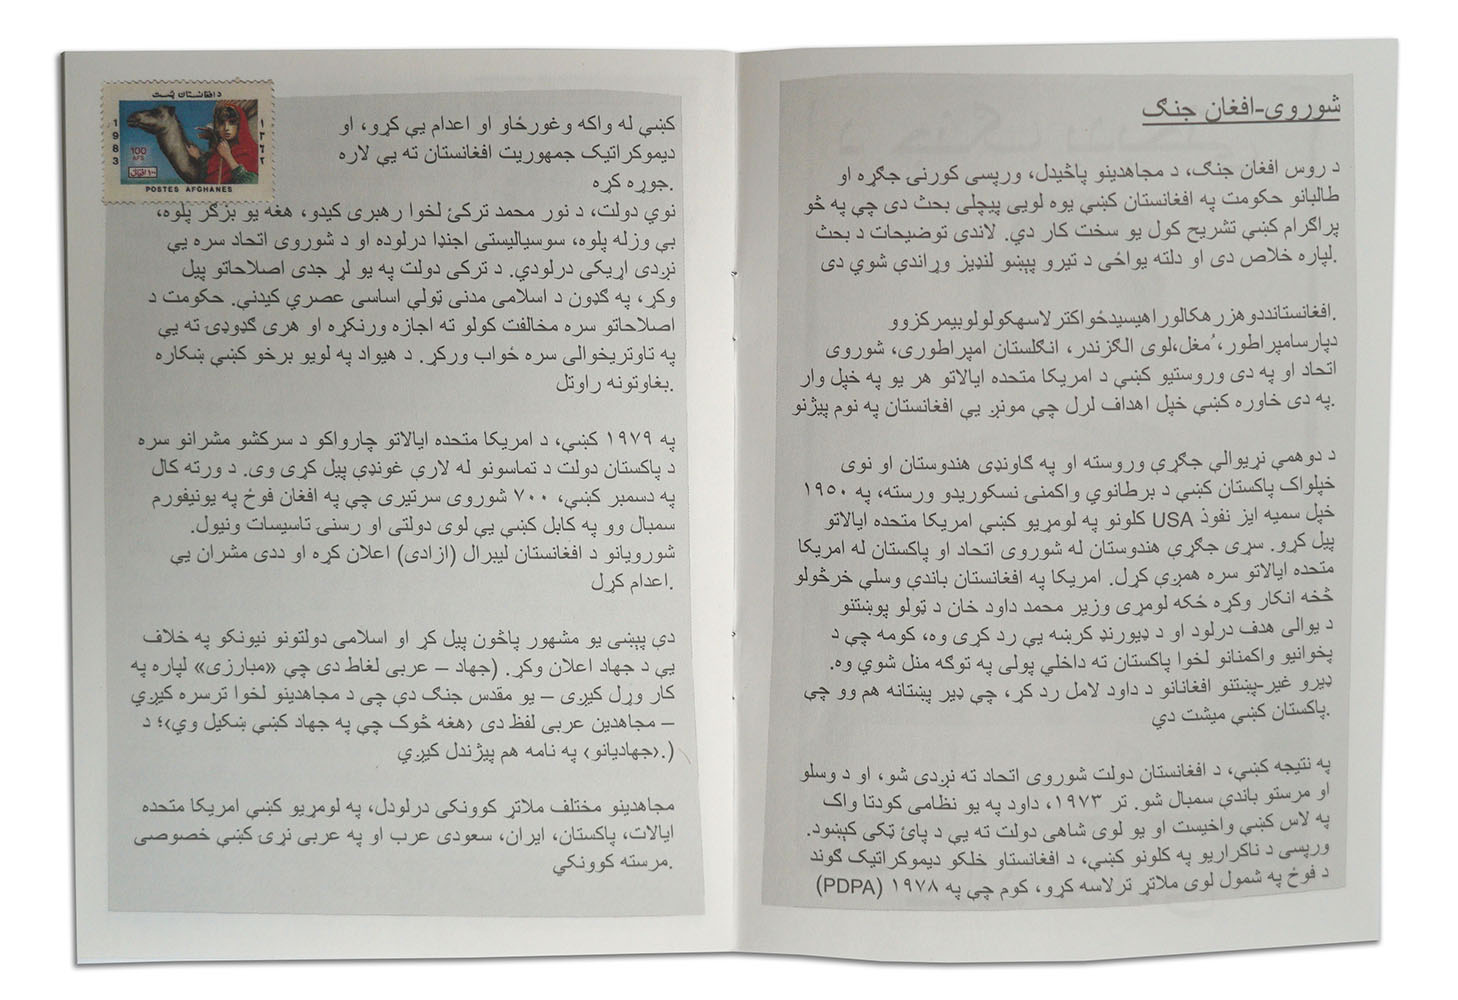 شوروی-افغان جنګ
د روس افغان جنګ، د مجاهدینو پاڅیدل، ورپسی کورنۍ جګړه او
طالبانو حکومت په افغانستان کښې یوه لویی پیچلی بحث دی چې په څو
پراګرام کښې تشریح کول یو سخت کار دي. لاندی توضیحات د بحث
لپاره خلاص دی او دلته یواځی د تیرو پیښو لنډیز وړاندي شوي دی.
افغانستانددوهزرهکالوراهیسیدځواکترلاسهکولولوبیمرکزوو.
دپارسامپراطور،مُغل،لوی الګزندر، انګلستان امپراطوری، شوروی
اتحاد او په دی وروستیو کښي د امریکا متحده ایالاتو هر یو په خپل وار
په دی خاوره کښې خپل اهداف لرل چې مونږ یې افغانستان په نوم پیژنو.
د دوهمې نړیوالې جګړې وروسته او په ګاونډی هندوستان او نوی
خپلواک پاکستان کښې د برطانوي واکمنی نسکوریدو ورسته، په ۱۹۵۰
کلونو په لومړیو کښې امریکا متحده ایالاتو USA خپل سمیه ایز نفوذ
پیل کړو. سړی جګړې هندوستان له شوروی اتحاد او پاکستان له امریکا
متحده ایالاتو سره همږې کړل. امریکا په افغانستان باندې وسلې خرڅولو
څخه انکار وکړه ځکه لومړی وزیر محمد داود خان د ټولو پوښتنو
د یوالی هدف درلود او د ډیورنډ کرښه یې رد کړی وه، کومه چې د
پخوانیو واکمنانو لخوا پاکستان ته داخلي پولی په توګه منل شوي وه.
ډیرو غیر-پښتنو افغانانو د داود لامل رد کړ، چې ډیر پښتانه هم وو چې
پاکستان کښې میشت دي.
په نتیجه کښې، د افغانستان دولت شوروی اتحاد ته نږدی شو، او د وسلو
او مرستو باندې سمبال شو. تر ۱۹۷۳، داود په یو نظامی کودتا واک
په لاس کښې واخیست او یو لوی شاهی دولت ته یې د پائ ټکی کېښود.
ورپسی د ناکراریو په کلونو کښې، د افغانستاو خلکو دیموکراتیک ګوند
(PDPA) د فوځ په شمول لوی ملاتړ ترلاسه کړو، کوم چې په ۱۹۷۸
د افغانستان پست
1983
۱۳۶۲
100 AFS
۱۰۰ افغانۍ
POSTES AFGHANES
کښې له واکه وغورځاو او اعدام یې کړو، او
دیموکراتیک جمهوریت افغانستان ته یې لاره
جوړه کړه.
نوي دولت، د نور محمد ترکئ لخوا رهبری کیدو، هغه یو بزګر پلوه،
بې وزله پلوه، سوسیالیستی اجنډا درلوده او د شوروی اتحاد سره یې
نږدی اړیکی درلودي. د ترکی دولت په یو لړ جدی اصلاحاتو پیل
وکړ، په ګډون د اسلامی مدنی ټولې اساسی عصري کیدنې. حکومت د
اصلاحاتو سره مخالفت کولو ته اجازه ورنکړه او هری ګډوډۍ ته یې
په تاوتریخوالی سره ځواب ورکړ. د هیواد په لویو برخو کښې ښکاره
بغاوتونه راوتل.
په ۱۹۷۹ کښې، د امریکا متحده ایالاتو چارواکو د سرکشو مشرانو سره
د پاکستان دولت د تماسونو له لارې غونډې پیل کړی وی. د ورته کال
په دسمبر کښې، ۷۰۰ شوروی سرتیری چې په افغان فوځ په یونیفورم
سمبال وو په کابل کښې یې لوی دولتی او رسنۍ تاسیسات ونیول.
شورویانو د افغانستان لیبرال (ازادی) اعلان کړه او ددی مشران یې
اعدام کړل.
دې پېښی یو مشهور پاڅون پیل کړ او اسلامی دولتونو نیونکو په خلاف
یې د جهاد اعلان وکړ. (جهاد – عربی لغاط دی چې «مبارزی» لپاره په
کار وړل کیږی – یو مقدس جنګ دې چې د مجاهدینو لخوا ترسره کیږي
– مجاهدین عربی لفظ دی ‹هغه څوک چې په جهاد کښې ښکیل وي›؛ د
‹جهادیانو› په نامه هم پیژندل کیږي.)
مجاهدینو مختلف ملاتړ کوونکی درلودل، په لومړیو کښې امریکا متحده
ایالات، پاکستان، ایران، سعودی عرب او په عربی نړۍ کښې خصوصی
مرسته کوونکي.